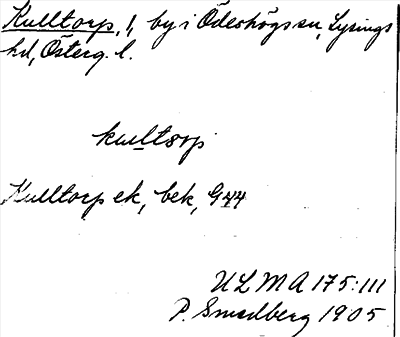 Kulltorp, 1, by i Ödeshögs sn, Lysings
hd, Österg. l.
kultorp
Kulltorp ek, bek, G44
ULMA 175:111
P. Smedberg 1905